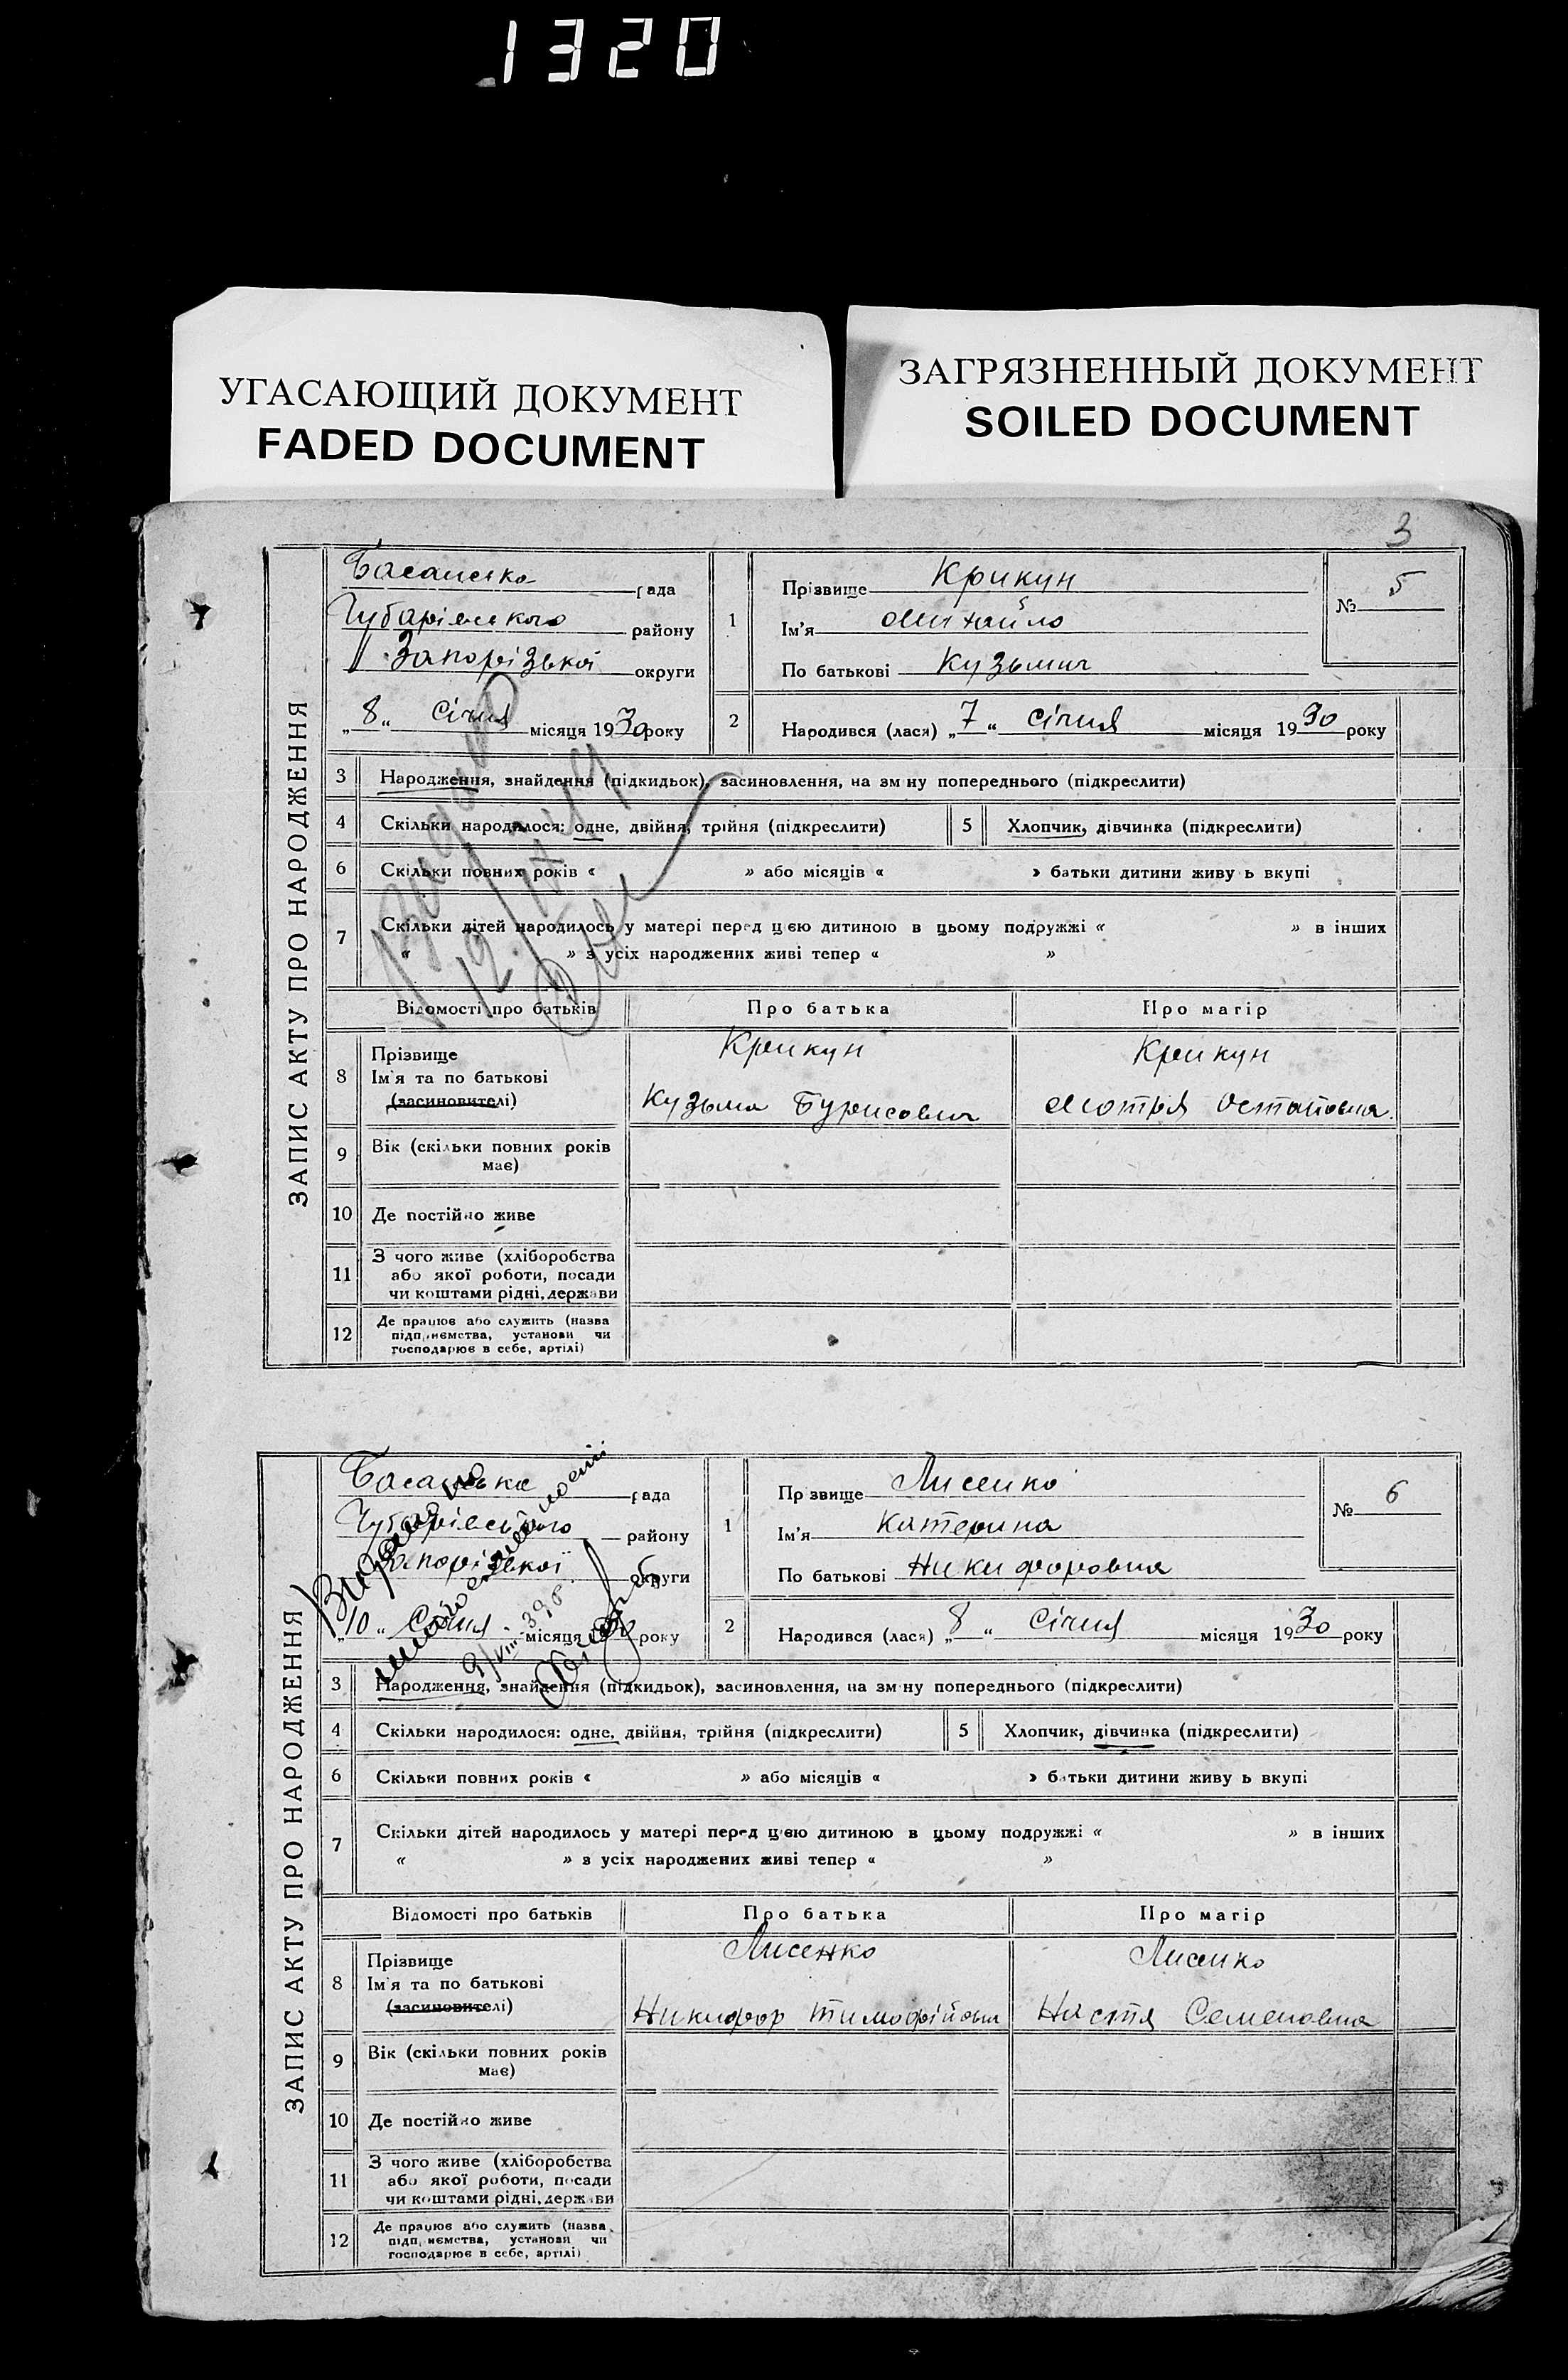 1320
УГАСАЮЩИЙ ДОКУМЕНТ
FADED DOCUMENT
ЗАГРЯЗНЕННЫЙ ДОКУМЕНТ
SOILED DOCUMENT
3
ЗАПИС АКТУ ПРО НАРОДЖЕННЯ
Басанська рада
Чубарівського району
Запорізької округи
„8“ Січня місяця 1930 року
1
Прізвище Крикун
Ім'я Михайло
По батькові Кузьмич
№ 5
2
Народився (лася) „7“ Січня місяця 1930 року
3 Народження, знайдення (підкидьок), засиновлення, на зміну попереднього (підкреслити)
4 Скільки народилося: одне, двійня, трійня (підкреслити)
5 Хлопчик, дівчинка (підкреслити)
6 Скільки повних років « » або місяців « » батьки дитини живуть вкупі
7 Скільки дітей народилось у матері перед цією дитиною в цьому подружжі « » в інших
« » з усіх народжених живі тепер « »
Відомості про батьків
Про батька
Про матір
8 Прізвище
Ім'я та по батькові
(засиновителі)
Крикун
Кузьма Бурисович
Крикун
Мотря Остаповна
9 Вік (скільки повних років
має)
10 Де постійно живе
11 З чого живе (хліборобства
або якої роботи, посади
чи коштами рідні, держави
12 Де працює або служить (назва
підприємства, установи чи
господарює в себе, артілі)
ЗАПИС АКТУ ПРО НАРОДЖЕННЯ
Басанська рада
Чубарівського району
Запорізької округи
„10“ Січня місяця 1930 року
1
Прізвище Лисенко
Ім'я Катерина
По батькові Никифоровна
№ 6
2
Народився (лася) „8“ Січня місяця 1930 року
3 Народження, знайдення (підкидьок), засиновлення, на зміну попереднього (підкреслити)
4 Скільки народилося: одне, двійня, трійня (підкреслити)
5 Хлопчик, дівчинка (підкреслити)
6 Скільки повних років « » або місяців « » батьки дитини живуть вкупі
7 Скільки дітей народилось у матері перед цією дитиною в цьому подружжі « » в інших
« » з усіх народжених живі тепер « »
Відомості про батьків
Про батька
Про матір
8 Прізвище
Ім'я та по батькові
(засиновителі)
Лисенко
Никифор Тимофійович
Лисенко
Настя Семеновна
9 Вік (скільки повних років
має)
10 Де постійно живе
11 З чого живе (хліборобства
або якої роботи, посади
чи коштами рідні, держави
12 Де працює або служить (назва
підприємства, установи чи
господарює в себе, артілі)